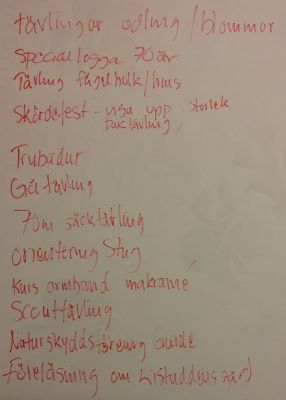 tävlingar odling / blommor
Speciallogga 70 år
Tävling fågelholk/hus
Skördefest - visa upp storlek
taktävling
Trubadur
Gåtävling
70m säcktävling
orientering Stig
Kurs armband makramé
Scouttävling
Naturskyddsförening Guide
Föreläsning om Listuddens gård